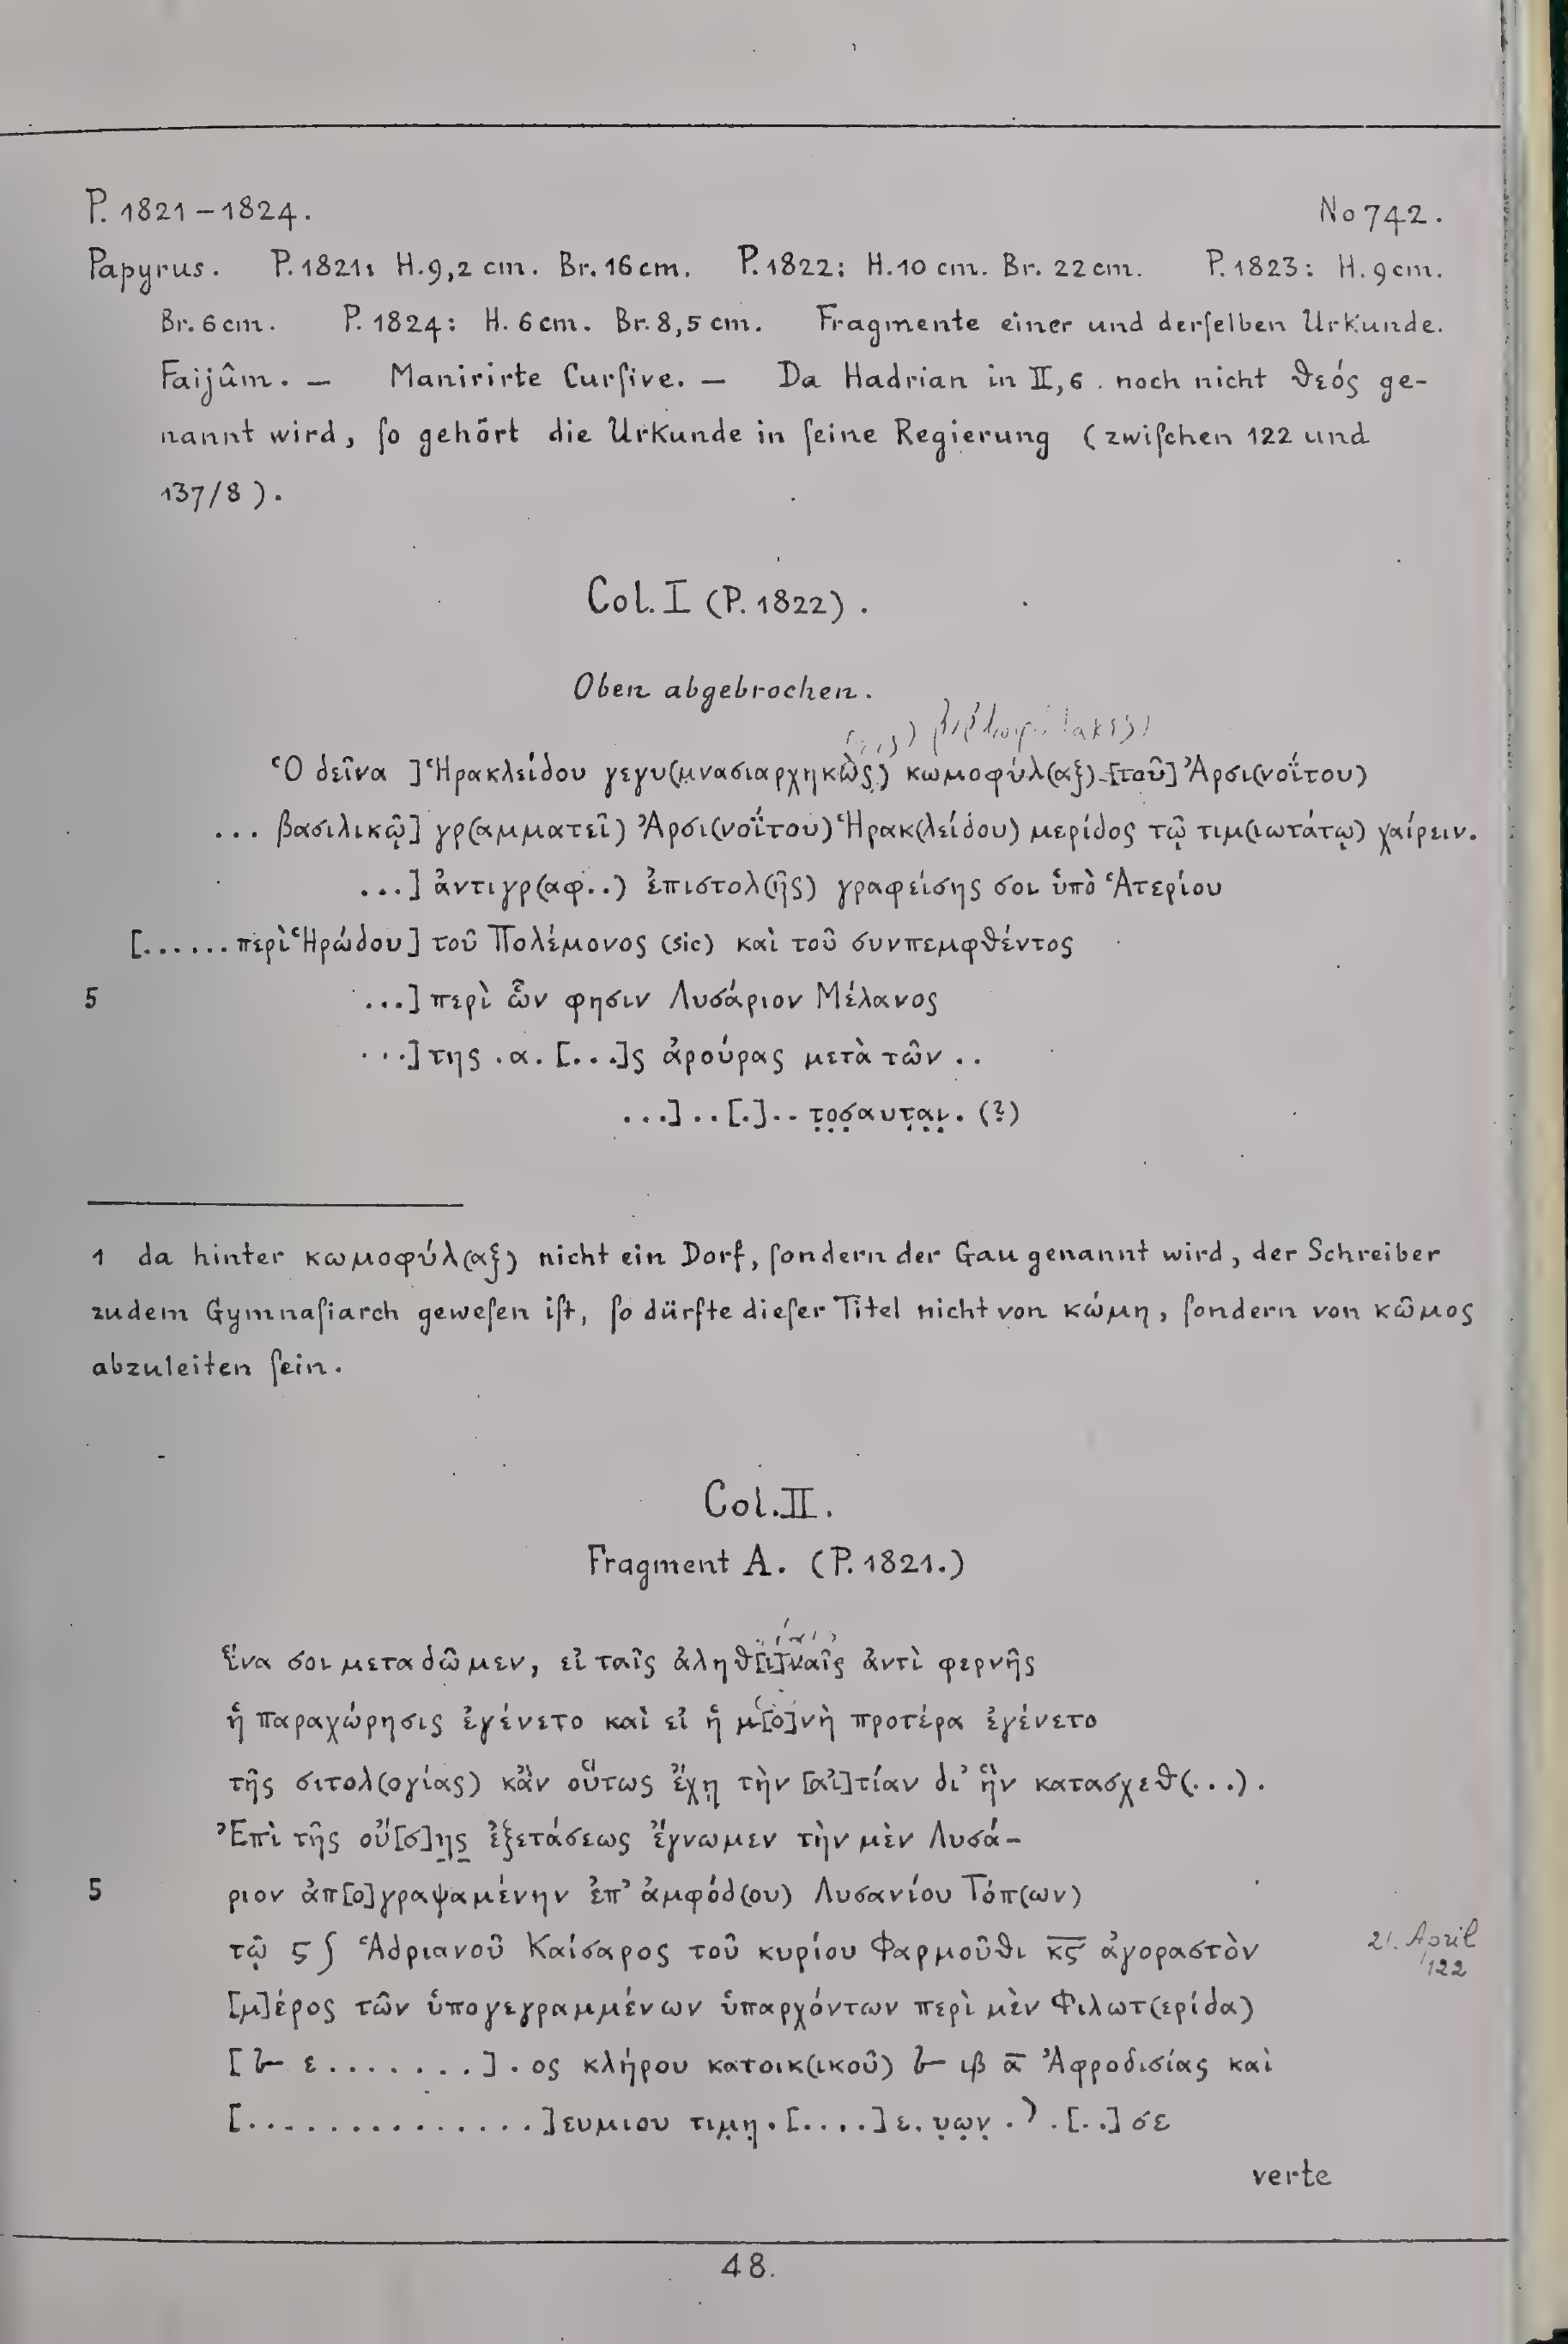 P. 1821 – 1824.
No 742.
Papyrus. P. 1821: H. 9,2 cm. Br. 16 cm. P. 1822: H. 10 cm. Br. 22 cm. P. 1823: H. 9 cm.
Br. 6 cm. P. 1824: H. 6 cm. Br. 8,5 cm. Fragmente einer und derſelben Urkunde.
Faijûm. — Manirirte Curſive. — Da Hadrian in II, 6. noch nicht θεός ge-
nannt wird, ſo gehört die Urkunde in ſeine Regierung (zwiſchen 122 und
137/8).
Col. I (P. 1822).
Oben abgebrochen.
Ὁ δεῖνα ] Ἡρακλείδου γεγυ(μνασιαρχηκὼς) κωμοφύλ(αξ) [τοῦ] Ἀρσι(νοΐτου)
... βασιλικῷ] γρ(αμματεῖ) Ἀρσι(νοΐτου) Ἡρακ(λείδου) μερίδος τῷ τιμ(ιωτάτῳ) χαίρειν.
...] ἀντιγρ(αφ..) ἐπιστολ(ῆς) γραφείσης σοι ὑπὸ Ἁτερίου
[...... περὶ Ἡρώδου] τοῦ Πολέμονος (sic) καὶ τοῦ συνπεμφθέντος
5 ...] περὶ ὧν φησιν Λυσάριον Μέλανος
...] της .α. [...]ς ἀρούρας μετὰ τῶν ..
...] .. [.] .. τ̣ο̣σ̣αυτ̣α̣ι̣. (?)
1 da hinter κωμοφύλ(αξ) nicht ein Dorf, ſondern der Gau genannt wird, der Schreiber
zudem Gymnaſiarch geweſen iſt, ſo dürfte dieſer Titel nicht von κώμη, ſondern von κῶμος
abzuleiten ſein.
Col. II.
Fragment A. (P. 1821.)
ἵνα σοι μεταδῶμεν, εἰ ταῖς ἀληθ[ι]ναῖς ἀντὶ φερνῆς
ἡ παραχώρησις ἐγένετο καὶ εἰ ἡ μ[ο]νὴ προτέρα ἐγένετο
τῆς σιτολ(ογίας) κἂν οὕτως ἔχῃ τὴν [αἰ]τίαν δι’ ἣν κατασχεθ(...).
Ἐπὶ τῆς οὔ[σ]ης ἐξετάσεως ἔγνωμεν τὴν μὲν Λυσά-
5 ριον ἀπ[ο]γραψαμένην ἐπ’ ἀμφόδ(ου) Λυσανίου Τόπ(ων)
τῷ ϛ ʃ Ἁδριανοῦ Καίσαρος τοῦ κυρίου Φαρμοῦθι κ̅ϛ̅ ἀγοραστὸν
21. April
122
[μ]έρος τῶν ὑπογεγραμμένων ὑπαρχόντων περὶ μὲν Φιλωτ(ερίδα)
[𐅵 ε .......] . ος κλήρου κατοικ(ικοῦ) 𐅵 ιβ α̅ Ἀφροδισίας καὶ
[..............]ευμιου τιμ̣η̣ . [....] ε. υ̣ω̣ν̣ . ) . [..] σε
verte
48.